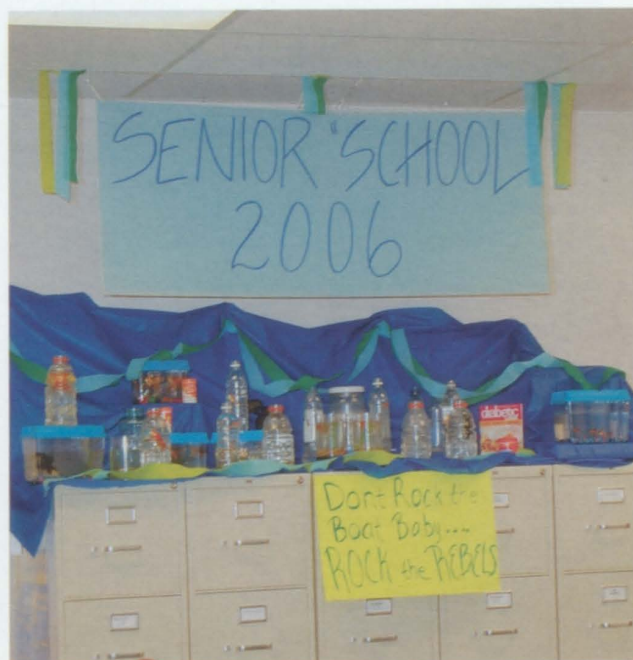 SENIOR "SCHOOL
2006
Dont Rock the
Boat Baby....
ROCK the REBELS